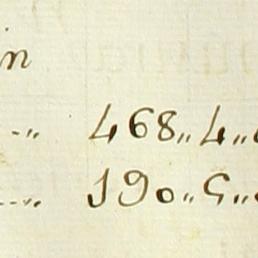 in
-„ 468„4„
--„ 190„5„